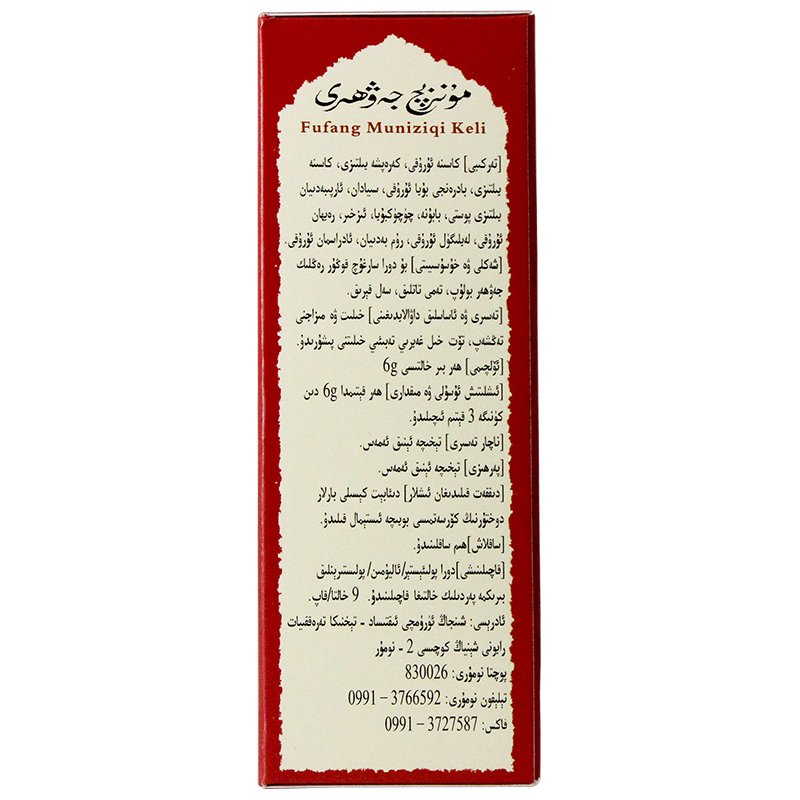 مۇنزىچ جەۋھەرى
Fufang Muniziqi Keli
[تەركىبى] كاسىنە ئۇرۇقى، كەرەپشە يىلتىزى، كاسىنە
يىلتىزى، بادرەنجى بۇيا ئۇرۇقى، سىيادان، ئارپىبەدىيان
يىلتىزى پوستى، بابۇنە، چۈچۈكبۇيا، ئىزخىر، رەيھان
ئۇرۇقى، لەيلىگۈل ئۇرۇقى، رۇم بەدىيان، ئادراسمان ئۇرۇقى.
[شەكلى ۋە خۇسۇسىيىتى] بۇ دورا سارغۇچ قوڭۇر رەڭلىك
جەۋھەر بولۇپ، تەمى تاتلىق، سەل قېرىق.
[تەسىرى ۋە ئاساسلىق داۋالايدىغىنى] خىلىت ۋە مىزاجنى
تەڭشەپ، تۆت خىل غەيرىي تەبىئىي خىلىتنى پىشۇرىدۇ.
[ئۆلچىمى] ھەر بىر خالتىسى 6g
[ئىشلىتىش ئۇسۇلى ۋە مىقدارى] ھەر قېتىمدا 6g دىن
كۈنىگە 3 قېتىم ئىچىلىدۇ.
[ناچار تەسىرى] تېخىچە ئېنىق ئەمەس.
[پەرھىزى] تېخىچە ئېنىق ئەمەس.
[دىققەت قىلىدىغان ئىشلار] دىئابېت كېسىلى بارلار
دوختۇرنىڭ كۆرسەتمىسى بويىچە ئىستېمال قىلىدۇ.
[ساقلاش]ھىم ساقلىنىدۇ.
[قاچىلىنىشى]دورا پولىئېستېر/ئاليۇمىن/پولىستىرېنلىق
بىرىكمە پەردىلىك خالتىغا قاچىلىنىدۇ. 9 خالتا/قاپ.
ئادرېسى: شىنجاڭ ئۈرۈمچى ئىقتىساد - تېخنىكا تەرەققىيات
رايونى شېنياڭ كوچىسى 2 - نومۇر
پوچتا نومۇرى: 830026
تېلېفون نومۇرى: 3766592 – 0991
فاكس: 3727587 – 0991